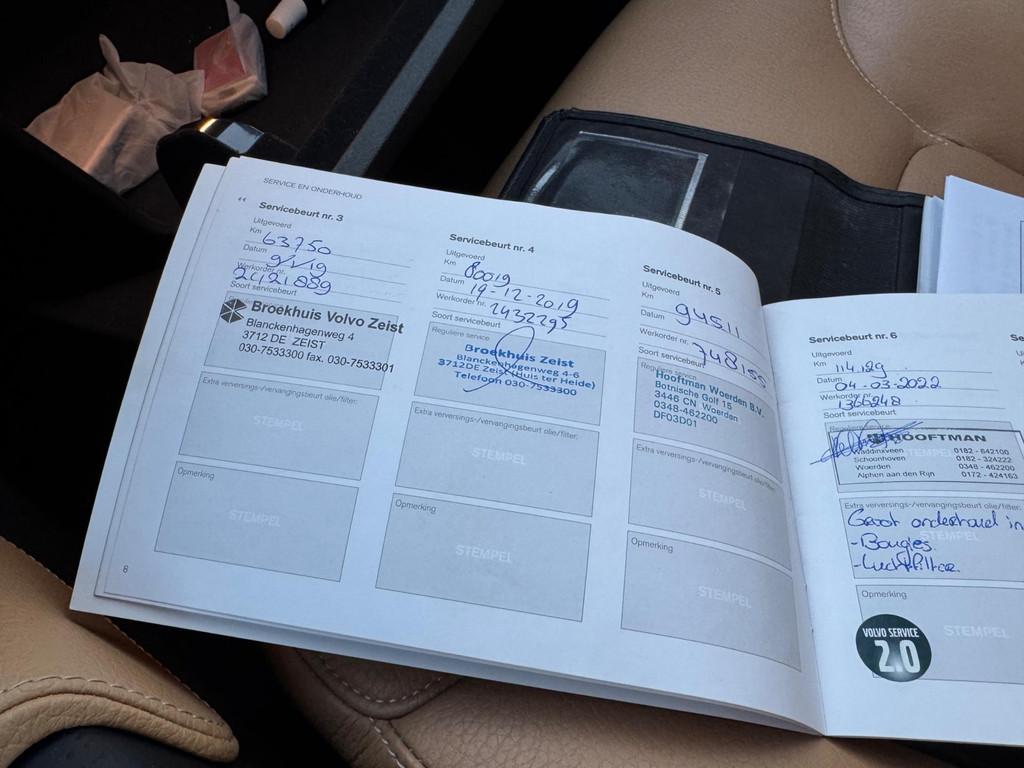 SERVICE EN ONDERHOUD
“ Servicebeurt nr. 3
Uitgevoerd
Km 63750
Datum 9/1/19
Werkorder nr. 2421889
Soort servicebeurt
Broekhuis Volvo Zeist
Blanckenhagenweg 4
3712 DE ZEIST
030-7533300 fax. 030-7533301
Extra verversings-/vervangingsbeurt olie/filter:
STEMPEL
Opmerking
STEMPEL
6
Servicebeurt nr. 4
Uitgevoerd
Km 80019
Datum 19-12-2019
Werkorder nr. 2432295
Soort servicebeurt
Reguliere service
Broekhuis Zeist
Blanckenhagenweg 4-6
3712DE Zeist (Huis ter Heide)
Telefoon 030-7533300
Extra verversings-/vervangingsbeurt olie/filter:
STEMPEL
Opmerking
STEMPEL
Servicebeurt nr. 5
Uitgevoerd
Km 94511
Datum
Werkorder nr. 748155
Soort servicebeurt
Reguliere service
Hooftman Woerden B.V.
Botnische Golf 15
3446 CN Woerden
0348-462200
DF03D01
Extra verversings-/vervangingsbeurt olie/filter:
STEMPEL
Opmerking
STEMPEL
Servicebeurt nr. 6
Uitgevoerd
Km 114.129
Datum 04-03-2022
Werkorder nr. 1366248
Soort servicebeurt
Reguliere service
HOOFTMAN
Waddinxveen 0182 - 642100
Schoonhoven 0182 - 324222
Woerden 0348 - 462200
Alphen aan den Rijn 0172 - 424163
STEMPEL
Extra verversings-/vervangingsbeurt olie/filter:
Groot onderhoud in
- Bougies
- Luchtfilter
STEMPEL
Opmerking
STEMPEL
VOLVO SERVICE
2.0
Se